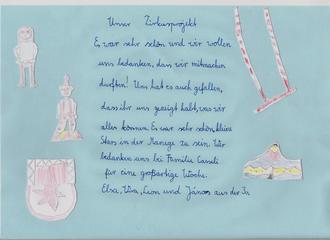 Unser Zirkusprojekt
Es war sehr schön und wir wollen
uns bedanken, dass wir mitmachen
durften! Uns hat es auch gefallen,
dass ihr uns gezeigt habt, was wir
alles können. Es war sehr schön, kleine
Stars in der Manege zu sein. Wir
bedanken uns bei Familie Caseli
für eine großartige Woche.
Elsa, Lion und János aus der